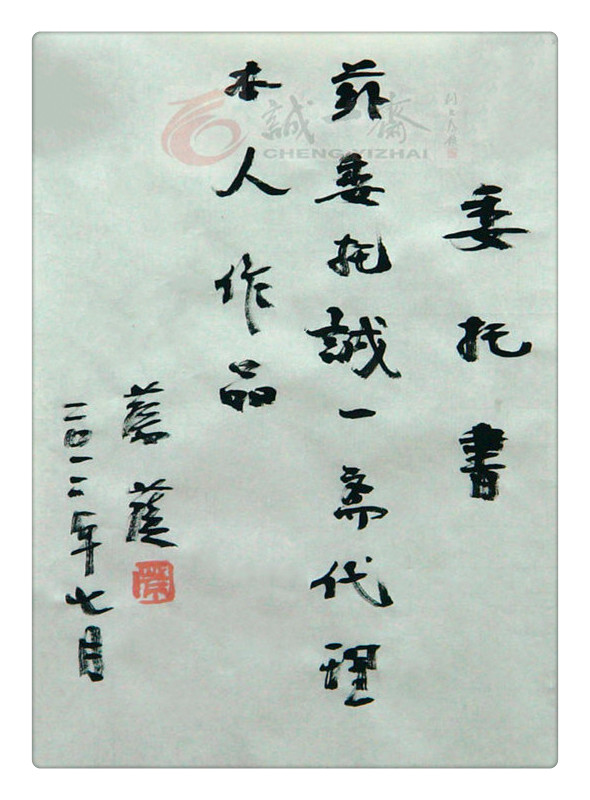 委托书
兹委托誠一斋代理
本人作品
二〇一二年七月
誠一齋
CHENG YIZHAI